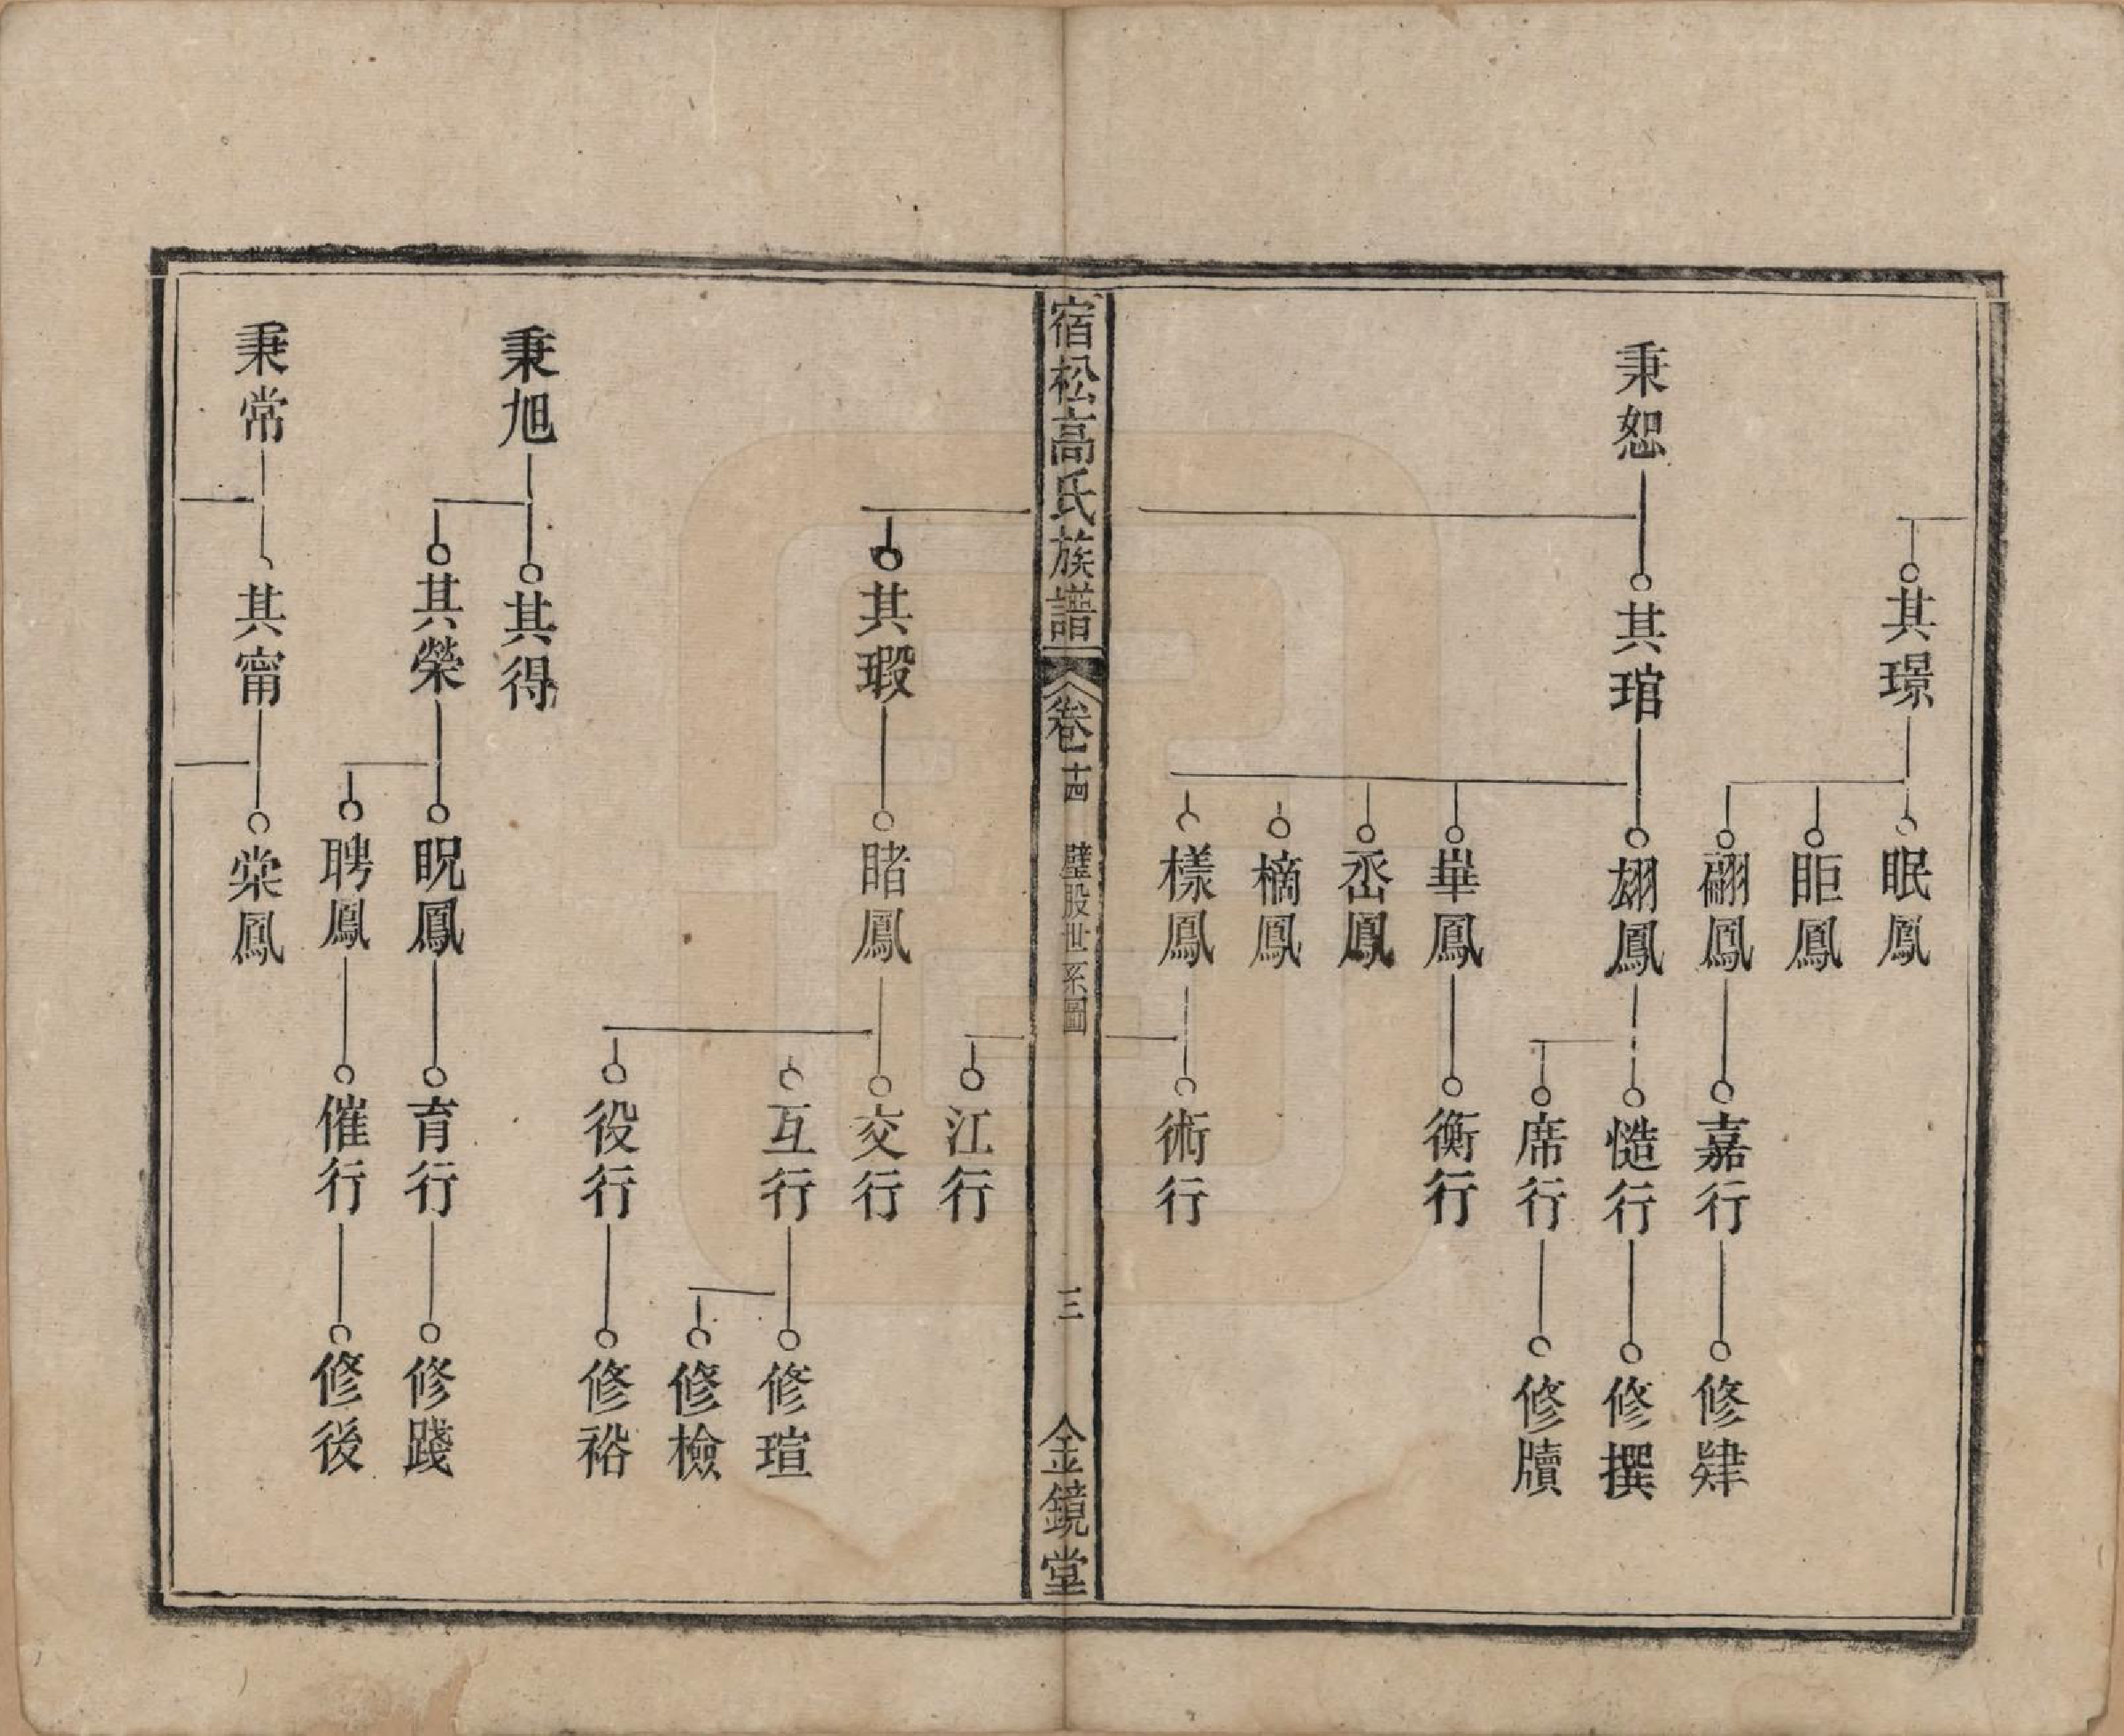 其璟
眠鳳
㫥鳳
翩鳳
嘉行
修肄
秉恕
其琯
翃鳳
慥行
修撰
席行
修牘
崋鳳
衡行
岙鳳
樀鳳
樣鳳
術行
宿松高氏族譜
卷十四
璧股世系圖
三
金鏡堂
江行
其瑕
睹鳳
交行
互行
修瑄
修檢
役行
修裕
秉旭
其得
其榮
睨鳳
育行
修踐
聘鳳
催行
修後
秉常
其甯
棠鳳